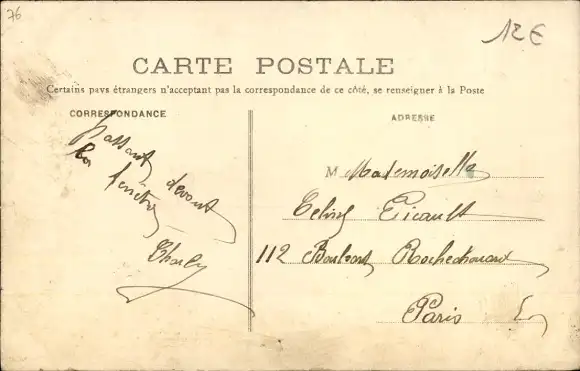 76
12€
CARTE POSTALE
Certains pays étrangers n'acceptant pas la correspondance de ce côté, se renseigner à la Poste
CORRESPONDANCE
Passant devant
la fenêtre
Charly
ADRESSE
M Mademoiselle
Picault
112 Boulevart Rochechouart
Paris